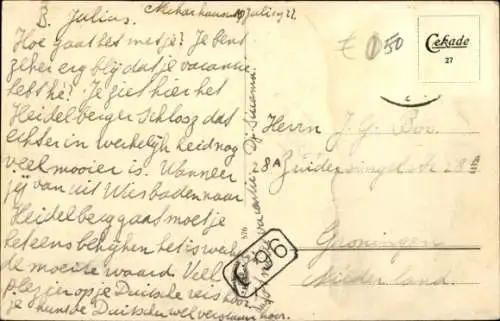 B. Julius.
10 Juli 1927.
Hoe gaat het metje? Je bent
zeker erg blij dat je vacantie
hebt hè? Je ziet hier het
Heidelberger Schlosz dat
echter in werkelijkheid nog
veel mooier is. Wanneer
jij van uit Wiesbaden naar
Heidelberg gaat moet je
het eens bekijken het is werk.
de moeite waard. Veel
plezier op je Duitsche reis hoor.
je kunt de Duitschers wel verstaan hoor.
Cekade
27
€ 1 50
Herrn J. G. Bos.
28A Zuidersingelstr 28
Groningen
Niederland.
576
96